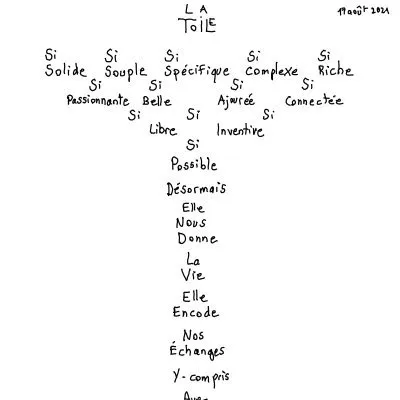 LA
19 août 2021
TOiLE
Si Si Si Si Si
Solide Souple Spécifique Complexe Riche
Si Si Si Si
Passionnante Belle Ajourée Connectée
Si Si Si
Libre Inventive
Si
Possible
Désormais
Elle
Nous
Donne
La
Vie
Elle
Encode
Nos
Échanges
Y-compris